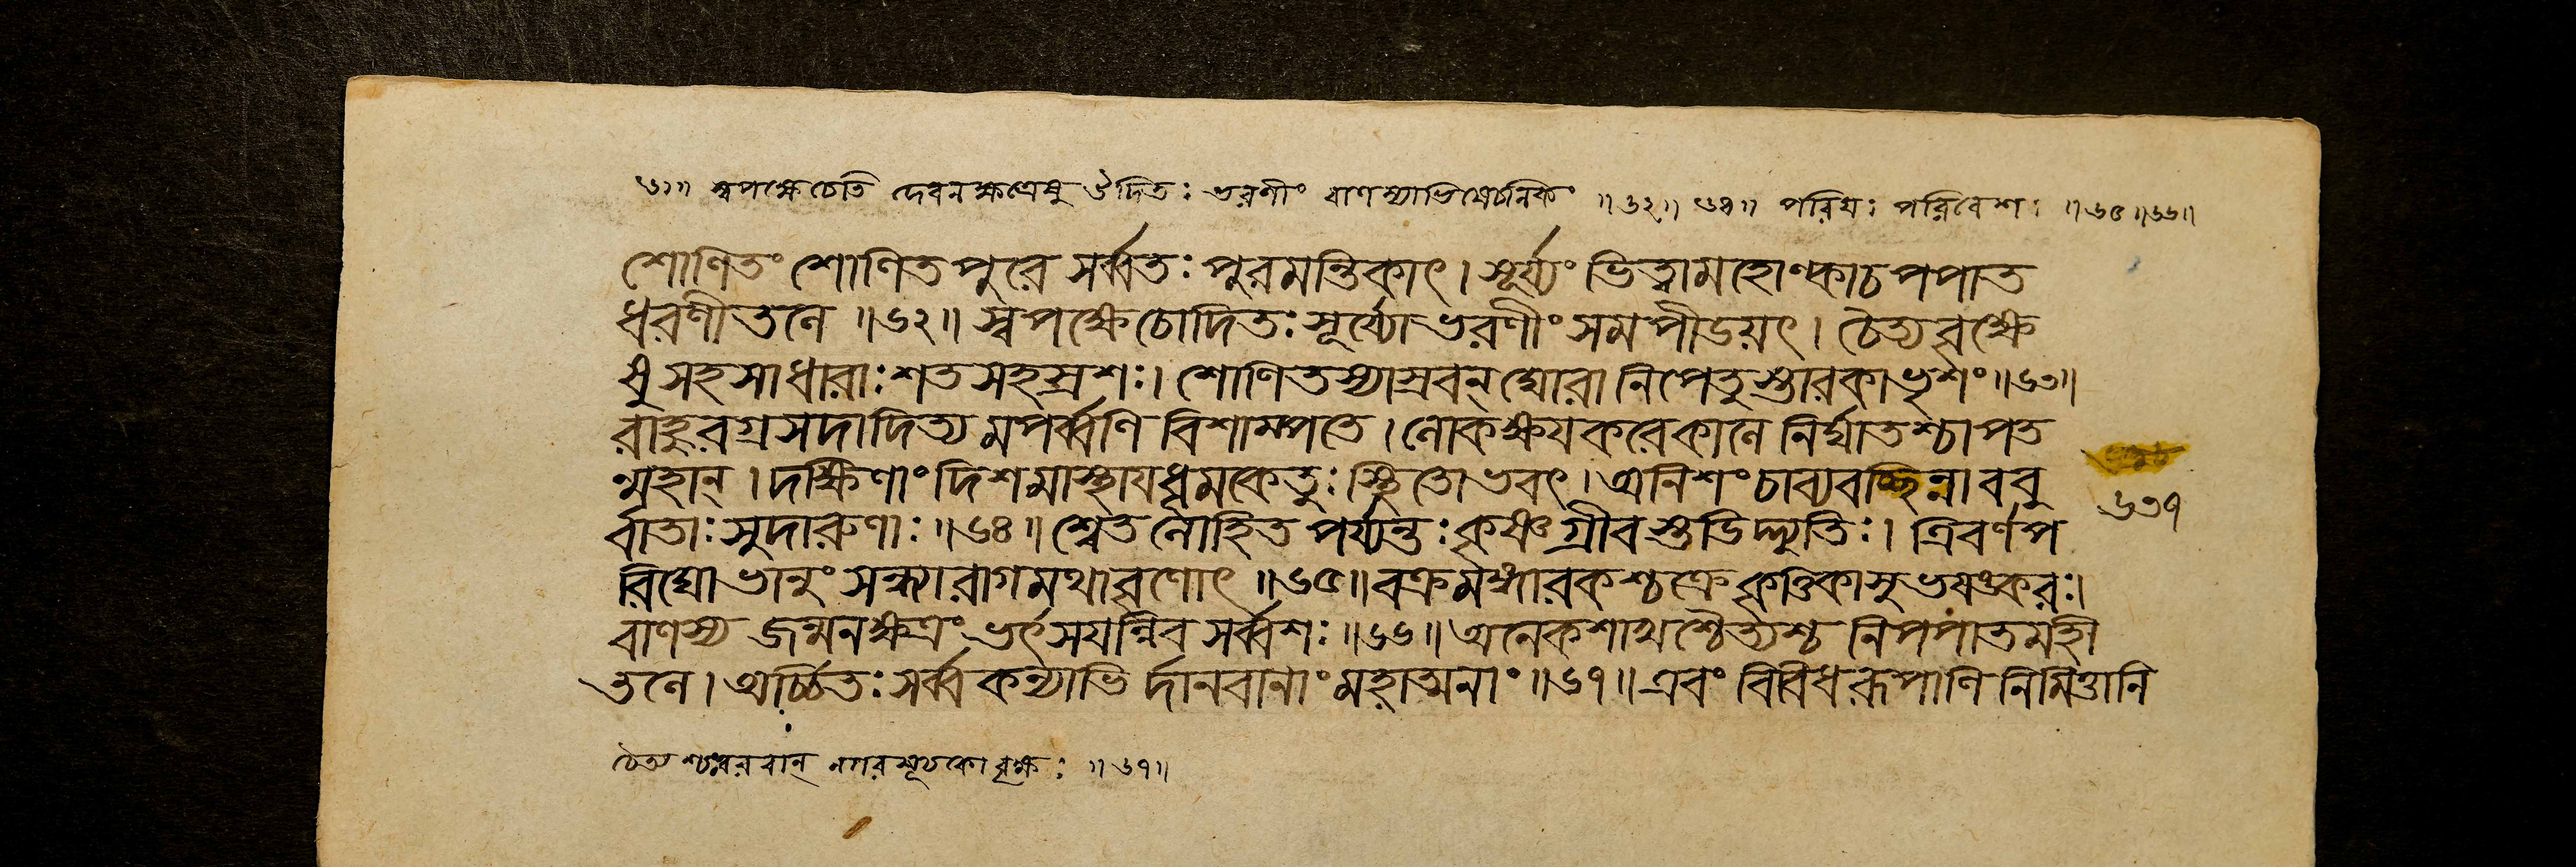 ৬১॥ স্বপক্ষেচেতি দেবনক্ষত্রেষু উদিতঃ ভরণীং বাণস্যাভিষেচনিকং ॥৬২॥ ৬৪॥ পরিঘঃ পরিবেশঃ ॥৬৫॥৬৬॥
শোণিতং শোণিতপুরে সর্ব্বতঃ পুরমন্তিকাৎ। সূর্য্যং ভিত্বামহোল্কাচপপাত
ধরণীতলে ॥৬২॥ স্বপক্ষেচোদিতঃ সূর্য্যোভরণীং সমপীডয়ৎ। চৈত্যবৃক্ষে
ষুসহসাধারাঃ শতসহস্রশঃ। শোণিতস্যাস্রবন্ঘোরা নিপেতুস্তারকাভৃশং॥৬৩॥
রাহুরগ্রসদাদিত্যমপর্ব্বণি বিশাম্পতে। লোকক্ষয়করেকালে নির্ঘাতশ্চাপত
ন্মহান্। দক্ষিণাং দিশমাস্থায়ধূমকেতুঃ স্থিতোভবৎ। অনিশং চাব্যবচ্ছিন্নাববু
র্বাতাঃ সুদারুণাঃ ॥৬৪॥ শ্বেতলোহিতপর্য্যন্তঃ কৃষ্ণগ্রীবস্তডিদ্দ্যুতিঃ। ত্রিবর্ণপ
৬৩৭
রিঘোভানুং সন্ধ্যারাগমথাবৃণোৎ ॥৬৫॥ বক্রমঙ্গারকশ্চক্রে কৃত্তিকাসুভয়ঙ্করঃ।
বাণস্য জন্মনক্ষত্রং ভর্ৎসয়ন্নিব সর্ব্বশঃ॥৬৬॥ অনেকশাখশ্চৈত্যশ্চ নিপপাতমহী
তলে। অর্চ্চিতঃ সর্ব্বকন্যাভির্দানবানাং মহাত্মনাং॥৬৭॥ এবং বিবিধরূপাণি নিমিত্তানি
চৈত্য নগরসূচকোবৃক্ষঃ ॥৬৭॥